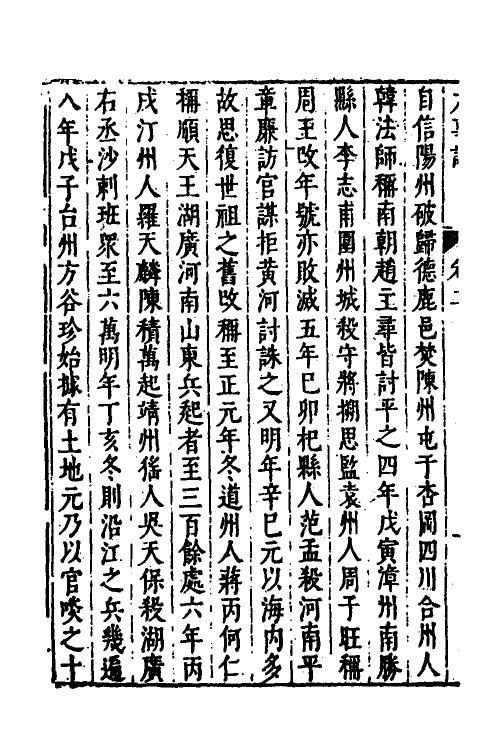 自信陽州破歸德鹿邑焚陳州屯于杏岡四川合州人
韓法師稱南朝趙王尋皆討平之四年戊寅漳州南勝
縣人李志甫圍州城殺守將搠思監袁州人周子旺稱
周王改年號亦敗滅五年巳卯杞縣人范孟殺河南平
章廉訪官謀拒黃河討誅之又明年辛巳元以海內多
故思復世祖之舊改稱至正元年冬道州人蔣丙何仁
稱順天王湖廣河南山東兵起者至三百餘處六年丙
戌汀州人羅天麟陳積萬起靖州徭人吳天保殺湖廣
右丞沙剌班眾至六萬明年丁亥冬則沿江之兵幾遍
八年戊子台州方谷珍始據有土地元乃以官啖之十